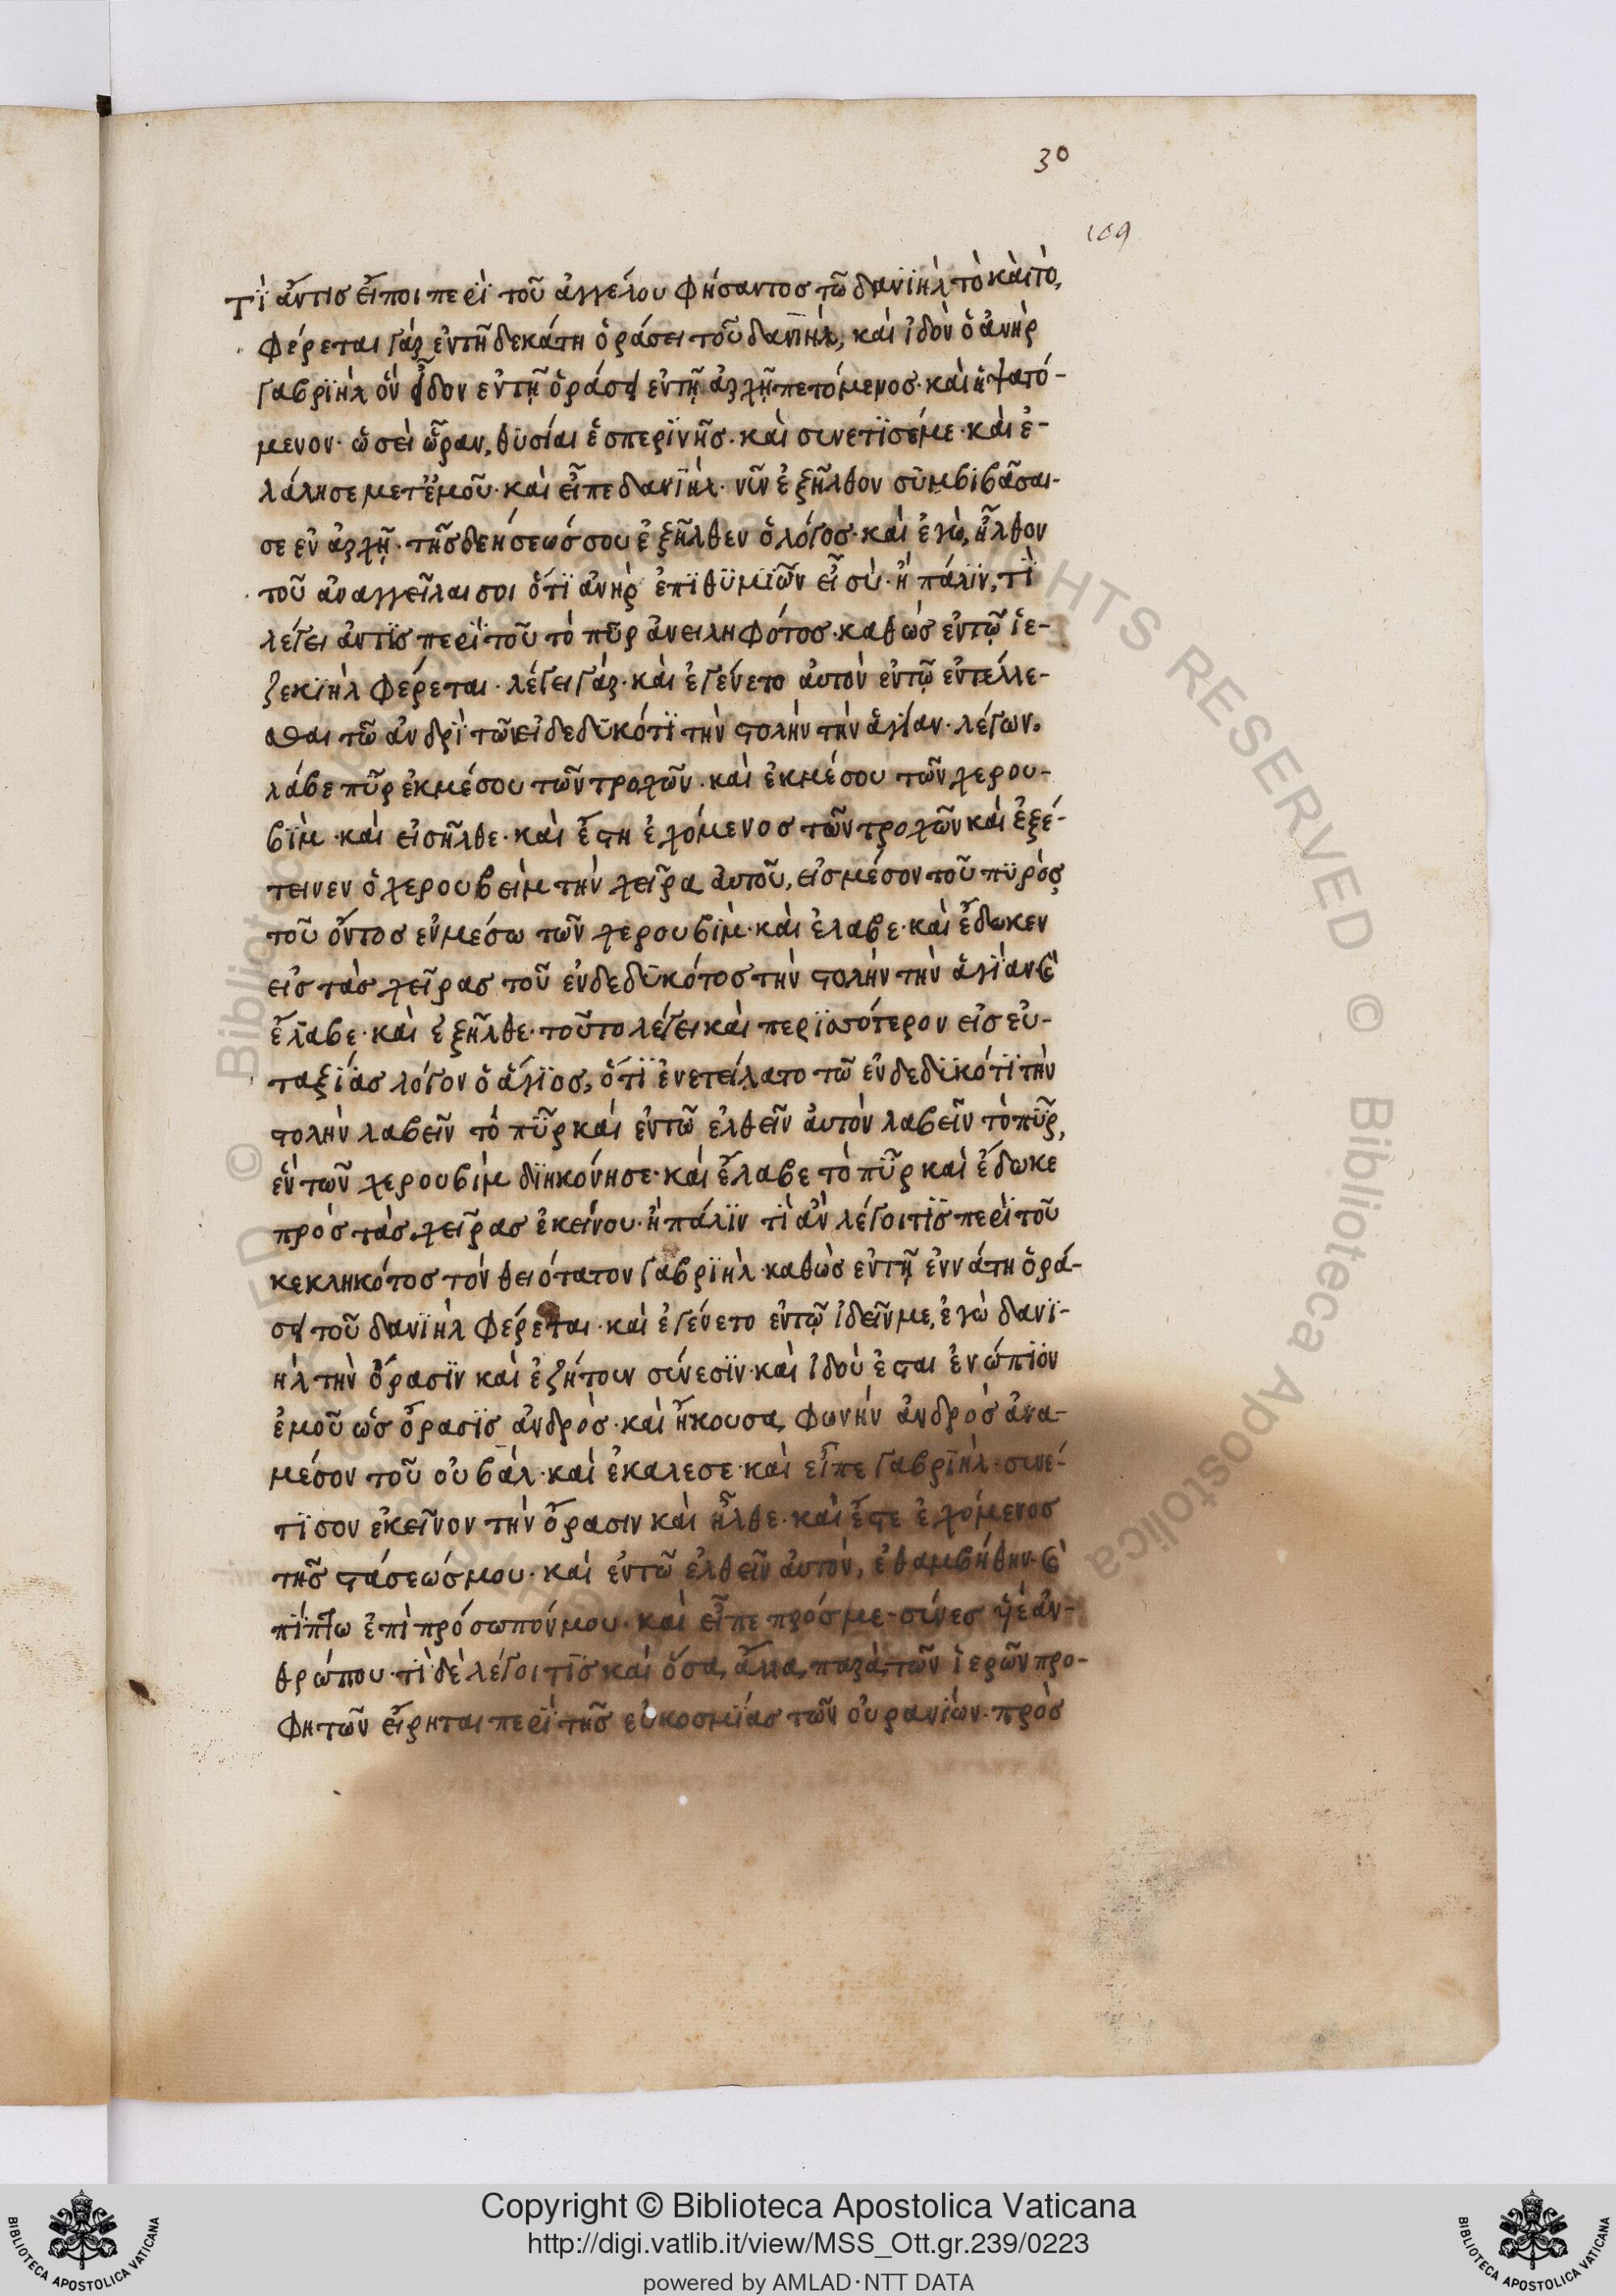 30
109
Τὶ ἄντισ εἴποι περὶ τοῦ ἀγγέλου φήσαντοσ τῶ δανϊὴλ τὸ καὶ τὸ,
φέρεται γὰρ ἐν τῆ δεκάτη ὁράσει τοῦ δανϊὴλ, καὶ ἰδοὺ ὁ ἀνὴρ
γαβριὴλ ὃν ἶδον ἐν τῇ ὁράσει ἐν τῇ ἀρχῇ πετόμενοσ· καὶ ἥψατό-
μενον· ὡσεὶ ὥραν, θυσίαι ἑσπερϊνῆσ· καὶ συνετϊσέμε· καὶ ἐ-
λάλησε μετ' ἐμοῦ· καὶ εἶπε δανϊὴλ· νῦν ἐξῆλθον συμβϊβᾶσαι-
σε ἐν ἀρχῇ· τῆσ δεήσεώσ σου ἐξῆλθεν ὁ λόγοσ· καὶ ἐγὼ, ἦλθον
τοῦ ἀναγγεῖλαι σοι ὅτϊ ἀνὴρ ἐπϊθϋμϊῶν εἶ σὺ· ἢ πάλϊν, τὶ
λέγει ἀντϊσ περὶ τοῦ τὸ πῦρ ἀνειληφότοσ· καθὼσ ἐν τῷ ἱε-
ζεκϊὴλ φέρεται· λέγει γὰρ· καὶ ἐγένετο ἀυτὸν ἐν τῷ ἐντέλλε-
σθαι τῶ ἀνδρὶ τῶν εἰδεδϋκότϊ τὴν στολὴν τὴν ἁγίαν· λέγων.
λάβε πῦρ ἐκ μέσου τῶν τροχῶν· καὶ ἐκ μέσου τῶν χερου-
βϊμ· καὶ εἰσῆλθε· καὶ ἔστη ἐχόμενοσ τῶν τροχῶν καὶ ἐξέ-
τεινεν ὁ χερουβεὶμ τὴν χεῖρα ἀυτοῦ, εἰσ μέσον τοῦ πϋρὸς
τοῦ ὄντοσ ἐν μέσω τῶν χερουβὶμ· καὶ ἔλαβε· καὶ ἔδωκεν
εἰσ τὰσ χεῖρασ τοῦ ἐνδεδϋκότοσ τὴν στολὴν τὴν ἁγίαν καὶ
ἔλαβε· καὶ ἐξῆλθε· τοῦτο λέγει καὶ περϊσσότερον εἰσ εὐ-
ταξϊάσ λόγον ὁ ἅγϊοσ, ὅτϊ ἐνετείλατο τῶ ἐνδεδϊκότϊ τὴν
στολὴν λαβεῖν τὸ πῦρ καὶ ἐν τῶ ἐλθεῖν ἀυτὸν λαβεῖν τὸ πῦρ,
ἓν τῶν χερουβὶμ δϊηκόνησε· καὶ ἔλαβε τὸ πῦρ καὶ ἔδωκε
πρὸσ τὰσ χεῖρασ ἐκείνου· ἢ πάλϊν τὶ ἂν λέγοι τϊσ περὶ τοῦ
κεκληκότοσ τὸν θειότατον γαβρϊὴλ· καθὼσ ἐν τῇ ἐννάτη ὁρά-
σει τοῦ δανϊὴλ φέρεται· καὶ ἐγένετο ἐν τῷ ἰδεῖν με, ἐγὼ δανϊ-
ὴλ τὴν ὅρασϊν καὶ ἐζήτουν σύνεσϊν· καὶ ἰδοὺ ἔσται ἐνώπϊον
ἐμοῦ ὡσ ὅρασϊσ ἀνδρὸσ· καὶ ἤκουσα, φωνὴν ἀνδρὸσ ἀνα-
μέσον τοῦ οὐβάλ· καὶ ἐκάλεσε· καὶ εἶπε γαβρϊὴλ· συνέ-
τϊσον ἐκεῖνον τὴν ὅρασιν καὶ ἦλθε· καὶ ἔστε ἐχόμενοσ
τῆσ στάσεώσ μου· καὶ ἐν τῶ ἐλθεῖν ἀυτὸν, ἐθαμβήθην· καὶ
πίπτω ἐπὶ πρόσωπόν μου· καὶ εἶπε πρόσ με- σύνεσ ὑϊὲ ἀν-
θρώπου· τὶ δὲ λέγοι τϊσ καὶ ὅσα, ἄλλα, παρὰ, τῶν ἱερῶν προ-
φητῶν εἴρηται περὶ τῆσ εὐκοσμίασ τῶν οὐρανίων· πρὸσ
Copyright © Biblioteca Apostolica Vaticana
http://digi.vatlib.it/view/MSS_Ott.gr.239/0223
powered by AMLAD·NTT DATA